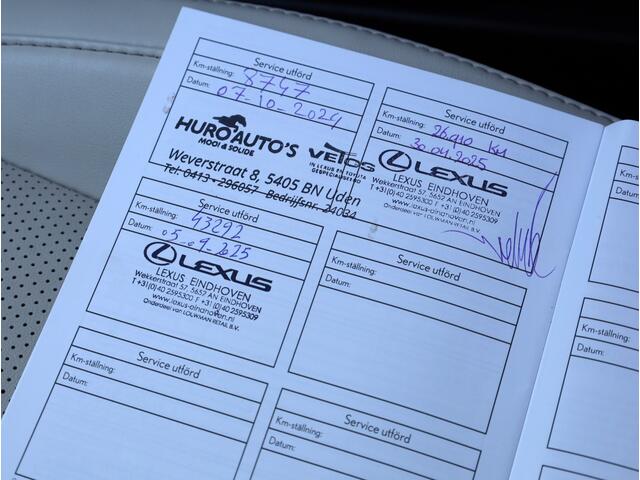 Service utförd
Km-ställning: 8747
Datum: 07-10-2024
HURO AUTO'S
MOOI & SOLIDE
VETOS
IN LEXUS EN TOYOTA
GESPECIALISEERD
Weverstraat 8, 5405 BN Uden
Tel. 0413-296057 Bedrijfsnr. 24034
Service utförd
Km-ställning: 26910 KM
Datum: 30.04.2025
LEXUS
LEXUS EINDHOVEN
Wekkerstraat 57, 5652 AN EINDHOVEN
T +31(0)40 2595300 F +31(0)40 2595309
www.lexus-eindhoven.nl
Onderdeel van LOUWMAN RETAIL B.V.
Service utförd
Km-ställning: 43292
Datum:
LEXUS
LEXUS EINDHOVEN
Wekkerstraat 57, 5652 AN EINDHOVEN
T +31(0)40 2595300 F +31(0)40 2595309
www.lexus-eindhoven.nl
Onderdeel van LOUWMAN RETAIL B.V.
Service utförd
Km-ställning:
Datum:
Service utförd
Km-ställning:
Datum:
Service utförd
Km-ställning:
Datum:
Km-ställning:
Datum:
Km-ställning:
Datum:
Km-ställning: